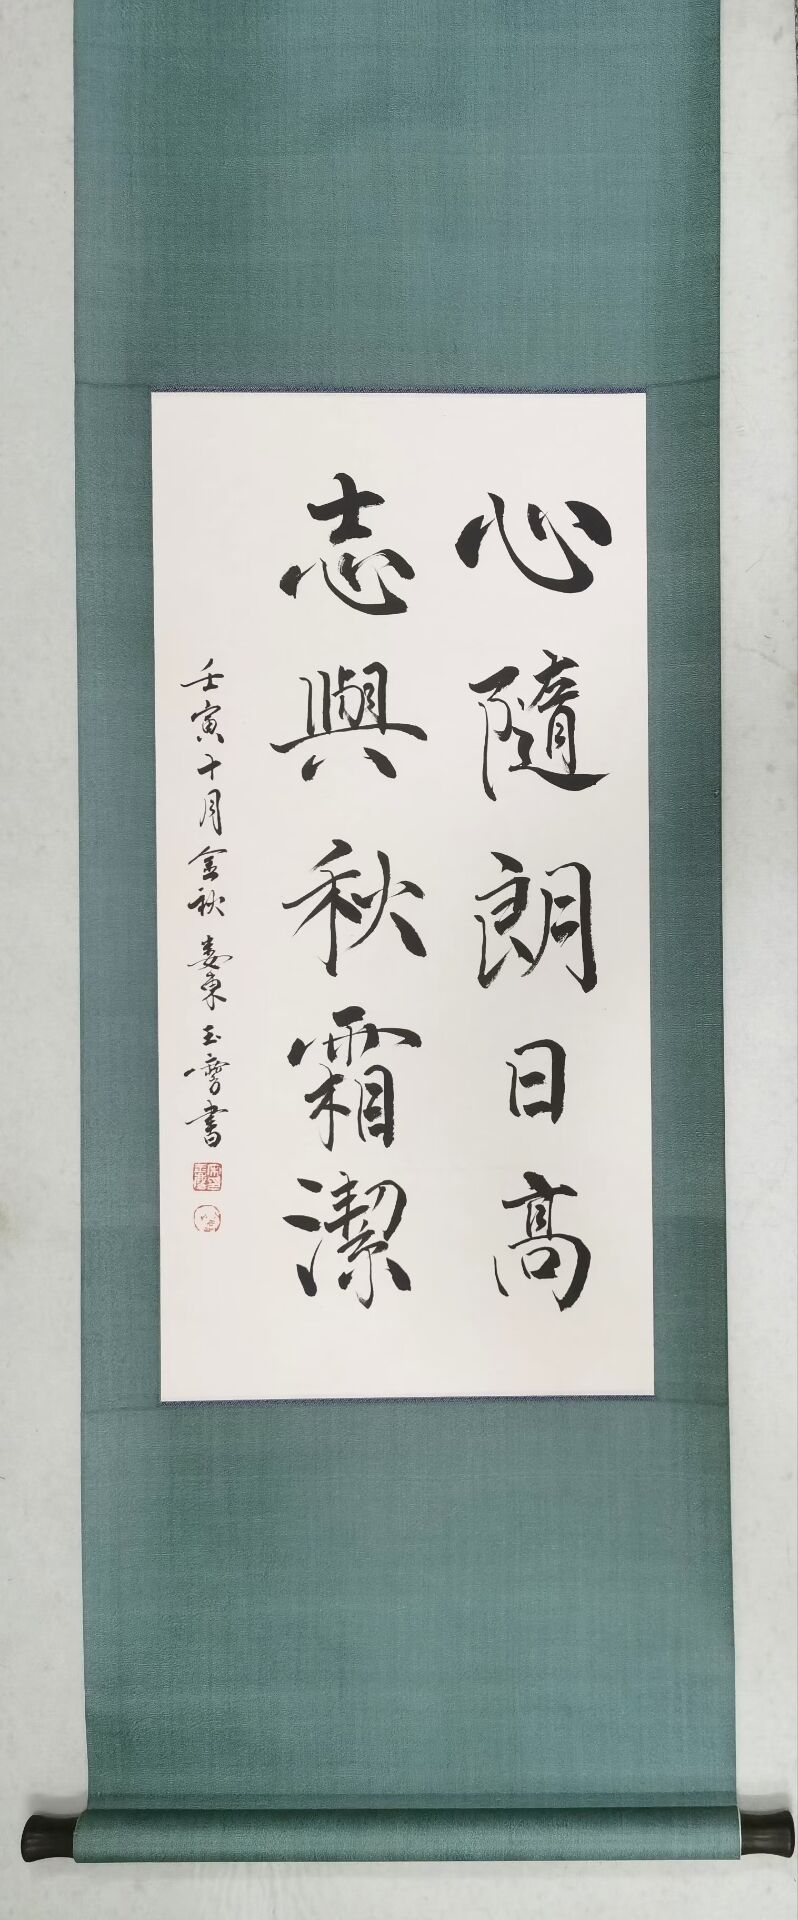 心隨朗日高
志與秋霜潔
壬寅十月金秋婁東玉雪書